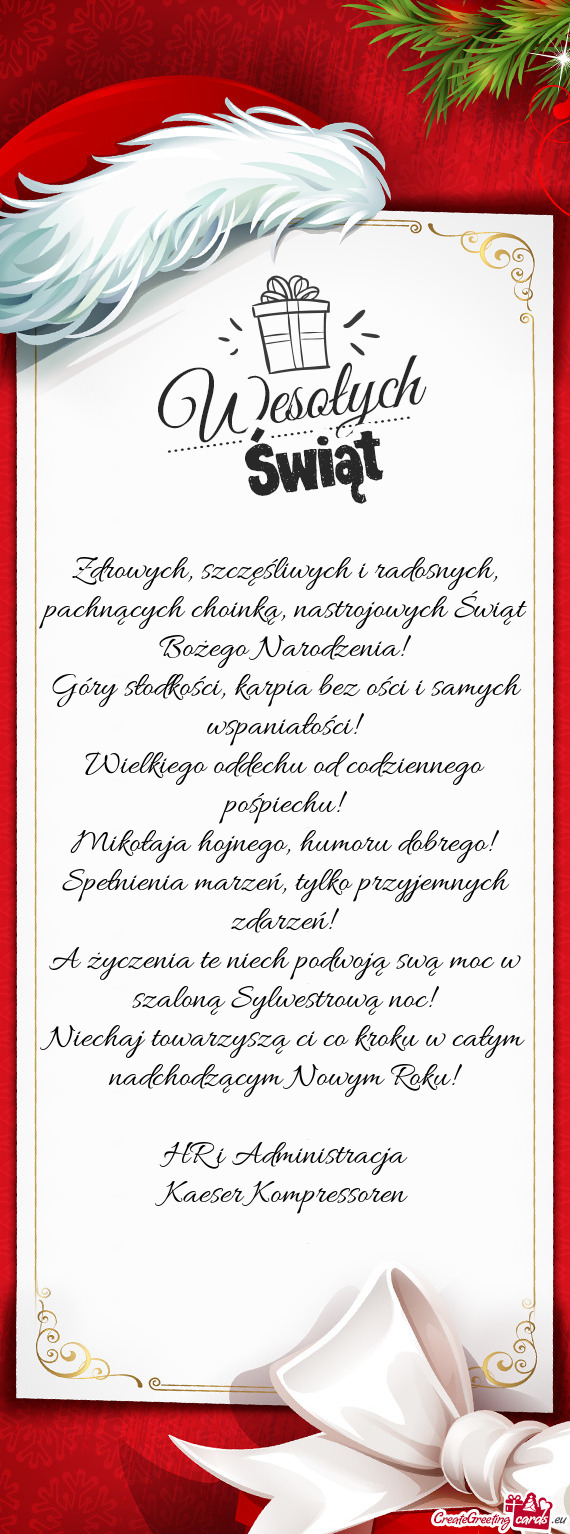 Wesołych
Świąt
Zdrowych, szczęśliwych i radosnych,
pachnących choinką, nastrojowych Świąt
Bożego Narodzenia!
Góry słodkości, karpia bez ości i samych
wspaniałości!
Wielkiego oddechu od codziennego
pośpiechu!
Mikołaja hojnego, humoru dobrego!
Spełnienia marzeń, tylko przyjemnych
zdarzeń!
A życzenia te niech podwoją swą moc w
szaloną Sylwestrową noc!
Niechaj towarzyszą ci co kroku w całym
nadchodzącym Nowym Roku!
HR i Administracja
Kaeser Kompressoren
CreateGreetingcards.eu